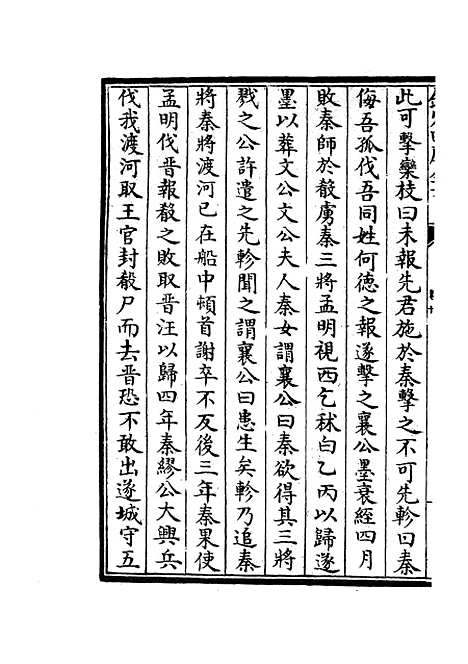 此可擊欒枝曰未報先君施於秦擊之不可先軫曰秦
侮吾孤伐吾同姓何德之報遂擊之襄公墨衰絰四月
敗秦師於殽虜秦三將孟明視西乞秫白乙丙以歸遂
墨以葬文公文公夫人秦女謂襄公曰秦欲得其三將
戮之公許遣之先軫聞之謂襄公曰患生矣軫乃追秦
將秦將渡河已在船中頓首謝卒不反後三年秦果使
孟明伐晉報殽之敗取晉汪以歸四年秦繆公大興兵
伐我渡河取王官封殽尸而去晉恐不敢出遂城守五